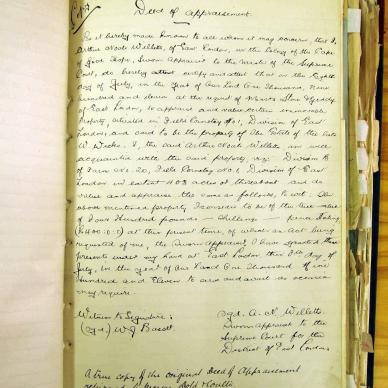 Deed of Appraisement.
Be it hereby made known to all whom it may concern, that I,
Arthur Noote Willetts, of East London, in the Colony of the Cape
of Good Hope, Sworn Appraiser to the Master of the Supreme
Court, do hereby attest certify and attest that on the Eighth
day of July, in the Year of our Lord One Thousand, Nine
hundred and eleven at the request of Messrs
of East London, to appraise and value certain immovable
Property, situated in Field Cornetcy No 1, Division of East
London, and said to be the property of the Estate of the late
W. Weeks. I, the said Arthur Noote Willetts am well
acquainted with the said property, viz: Division B
of Farm No. 20, Field Cornetcy No 1, Division of East
London in extent acres or thereabout and do
value and appraise the same as follows, to wit: the
above mentioned property I consider to be of the true value
of Four Hundred pounds — Shillings — pence Sterling
(£400.0.0) at this present time, of which an Act being
requested of me, the Sworn Appraiser, I have granted these
presents under my hand at East London this 8th day of
July, in the Year of our Lord One Thousand Nine
Hundred and Eleven to serve and avail as occasion
may require.
Witness to Signature:
(sgd.) W J
sgd. A. N. Willetts.
Sworn Appraiser to the
Supreme Court for the
District of East London
A true copy of the original Deed of Appraisement